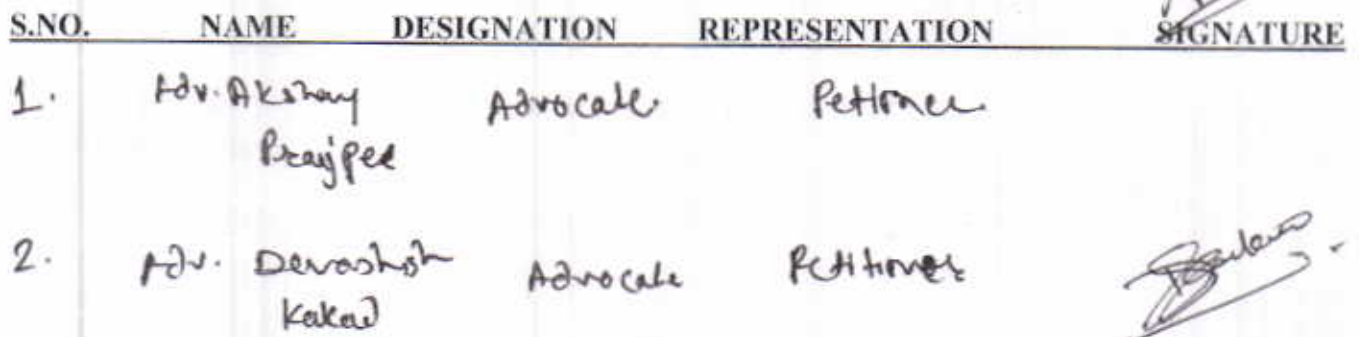 S.NO. NAME DESIGNATION REPRESENTATION SIGNATURE
1. Adv. Akshay Advocate Petitioner
2. Adv. Devashish Advocate Petitioner
Kakad